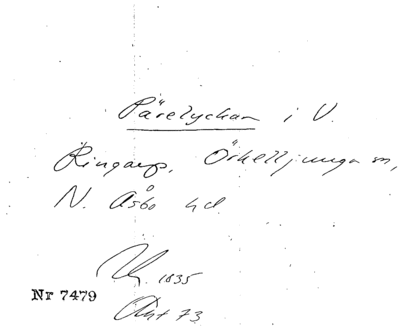 Pärelyckan i V.
Ringarp, Örkelljunga sn,
N. Åsbo hd.
1835
Nr 7479
Akt 73